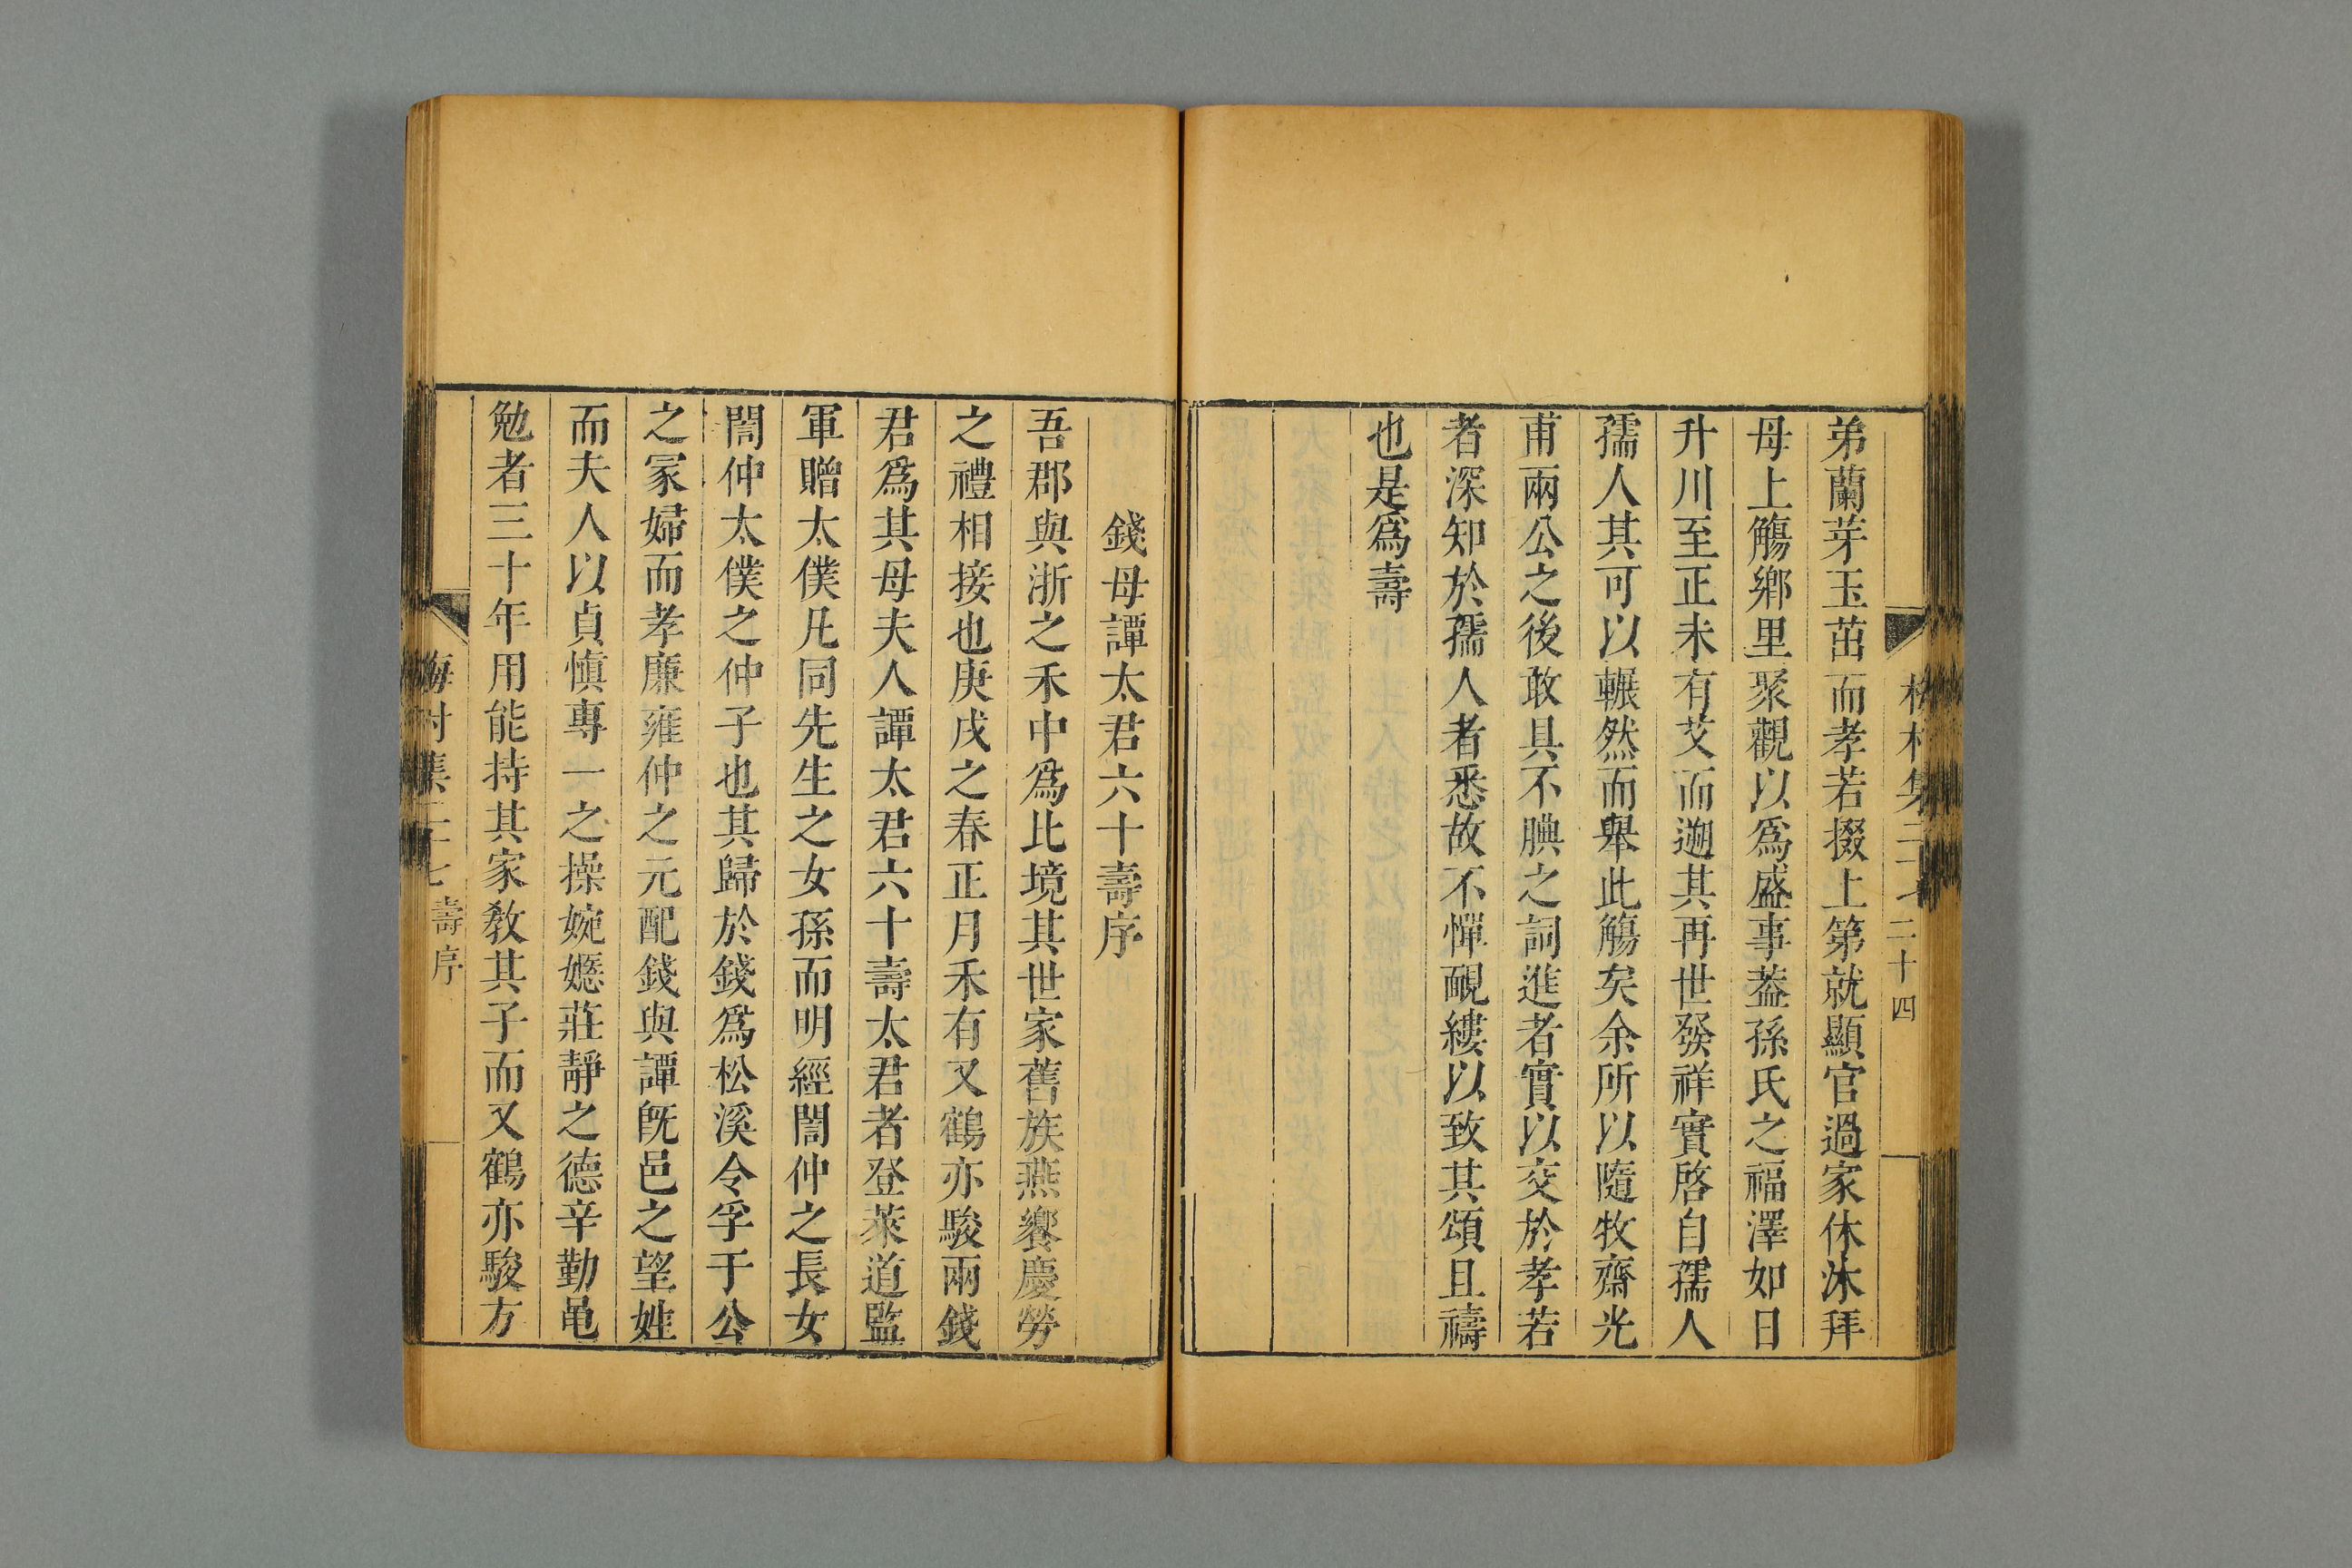 二十四
弟蘭芽玉茁而孝若掇上第就顯官過家休沐拜
母上觴鄉里聚觀以爲盛事葢孫氏之福澤如日
升川至正未有艾而遡其再世發祥實啓自孺人
孺人其可以囅然而舉此觴矣余所以隨牧齋光
甫兩公之後敢具不腆之詞進者實以交於孝若
者深知於孺人者悉故不憚覼縷以致其頌且禱
也是爲壽
錢母譚太君六十壽序
吾郡與浙之禾中爲比境其世家舊族燕饗慶勞
之禮相接也庚戌之春正月禾有又鶴亦駿兩錢
君爲其母夫人譚太君六十壽太君者登萊道監
軍贈太僕凡同先生之女孫而明經誾仲之長女
誾仲太僕之仲子也其歸於錢爲松溪令孚于公
之冢婦而孝廉雍仲之元配錢與譚旣邑之望姓
而夫人以貞愼專一之操婉嫕莊靜之德辛勤黽
勉者三十年用能持其家敎其子而又鶴亦駿方
梅村集二十七 壽序